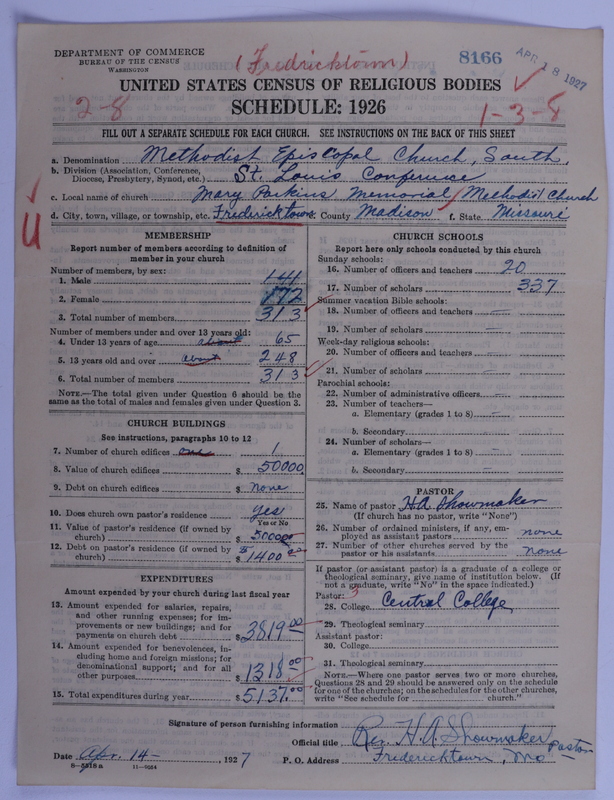 DEPARTMENT OF COMMERCE
BUREAU OF THE CENSUS
WASHINGTON
(Fredricktown)
8166
APR 18 1927
UNITED STATES CENSUS OF RELIGIOUS BODIES
2-8
SCHEDULE: 1926
1-3-8
FILL OUT A SEPARATE SCHEDULE FOR EACH CHURCH. SEE INSTRUCTIONS ON THE BACK OF THIS SHEET
a. Denomination Methodist Episcopal Church, South,
b. Division (Association, Conference, Diocese, Presbytery, Synod, etc.) St. Louis Conference
c. Local name of church Mary Parkins Memorial Methodist Church
d. City, town, village, or township, etc. Fredericktown County Madison f. State Missouri
MEMBERSHIP
Report number of members according to definition of
member in your church
Number of members by sex:
1. Male 141
2. Female 172
3. Total number of members 313
Number of members under and over 13 years old:
4. Under 13 years of age about 65
5. 13 years old and over about 248
6. Total number of members 313
NOTE.—The total given under Question 6 should be
same as the total of males and females given under Question 3.
CHURCH BUILDINGS
See instructions, paragraphs 10 to 12
7. Number of church edifices one 1
8. Value of church edifices $ 50000
9. Debt on church edifices $ None
10. Does church own pastor's residence yes
Yes or No
11. Value of pastor's residence (if owned by
church) $ 5000
12. Debt on pastor's residence (if owned by
church) $ 1400 00
EXPENDITURES
Amount expended by your church during last fiscal year
13. Amount expended for salaries, repairs,
and other running expenses; for im-
provements or new buildings; and for
payments on church debt $ 3819.00
14. Amount expended for benevolences, in-
cluding home and foreign missions; for
denominational support; and for all
other purposes $ 1318 00
15. Total expenditures during year $ 5137.00
CHURCH SCHOOLS
Report here only schools conducted by this church
Sunday schools:
16. Number of officers and teachers 20
17. Number of scholars 337
Summer vacation Bible schools:
18. Number of officers and teachers —
19. Number of scholars —
Week-day religious schools:
20. Number of officers and teachers —
21. Number of scholars —
Parochial schools:
22. Number of administrative officers —
23. Number of teachers—
a. Elementary (grades 1 to 8) —
b. Secondary —
24. Number of scholars—
a. Elementary (grades 1 to 8) —
b. Secondary —
PASTOR
25. Name of pastor H.A. Showmaker
(If church has no pastor, write "None")
26. Number of ordained ministers, if any, em-
ployed as assistant pastors none
27. Number of other churches served by the
pastor or his assistants none
If pastor (or assistant pastor) is a graduate of a college or
theological seminary, give name of institution below. (If
not a graduate, write "No" in the space indicated.)
Pastor: 3
28. College Central College
29. Theological seminary
Assistant pastor:
30. College
31. Theological seminary
NOTE.—Where one pastor serves two or more churches,
Questions 28 and 29 should be answered only on the schedule
for one of the churches; on the schedules for the other churches,
write "See schedule for church."
Signature of person furnishing information Rev. H. A. Showmaker
Official title Pastor
Date Apr. 14- , 1927
P. O. Address Fredericktown, Mo
8-5518a
11-9024